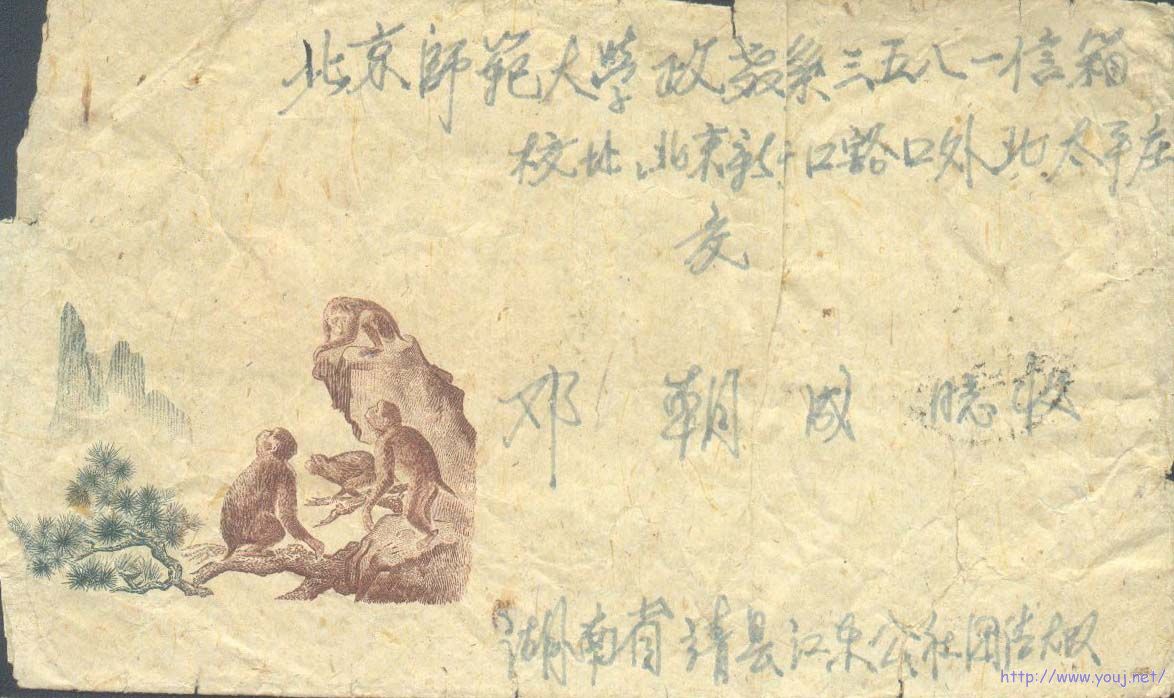 北京師範大學政教系三五八一信箱
校址:北京新街口豁口外北太平庄
交
邓 朝 成 收
湖南省靖县江东公社团
http://www.youj.net/